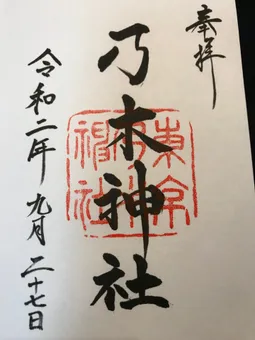 奉拝
乃木神社
令和二年九月二十七日
東京
乃木
神社